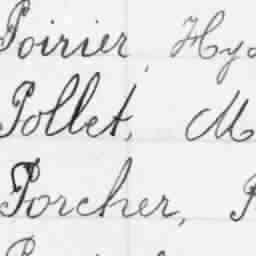 Poirier, Hya
Pollet, M
Porcher, P